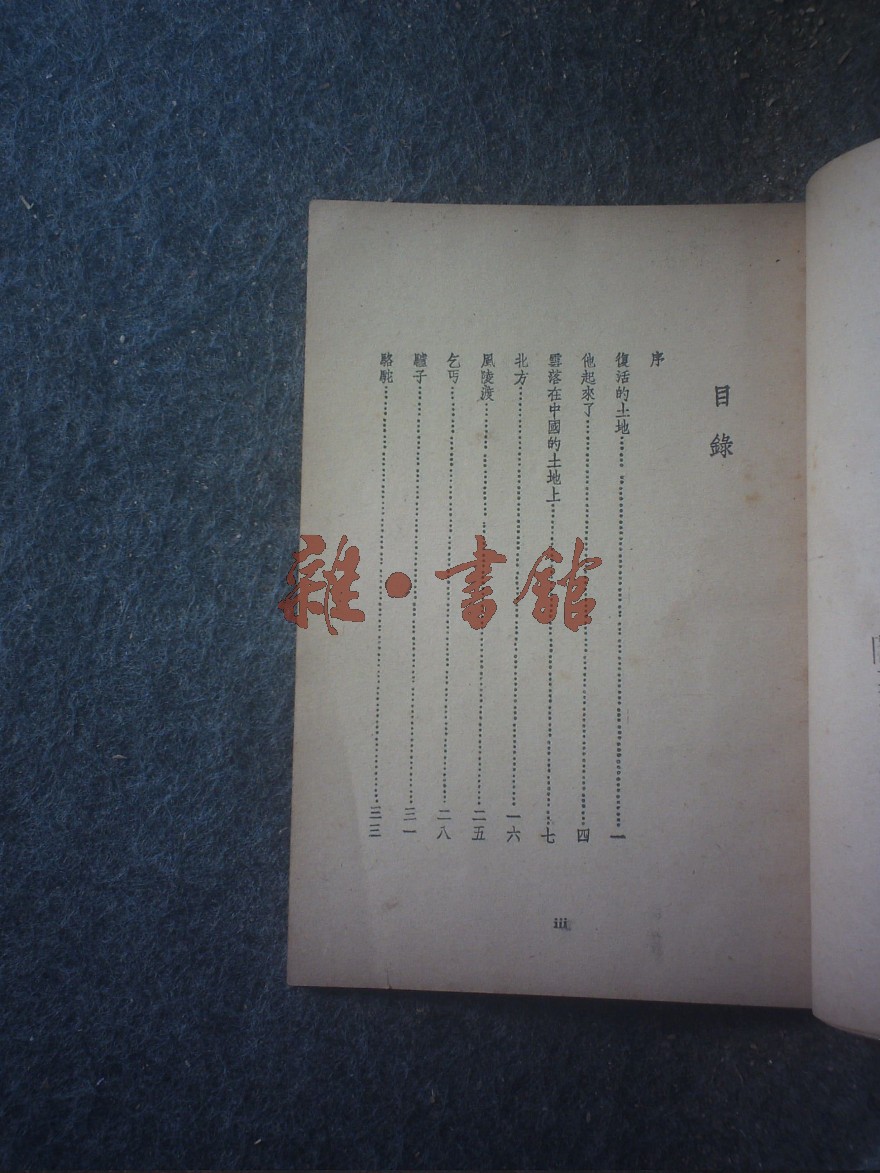 目錄
序
復活的土地……………………一
他起來了……………………四
雪落在中國的土地上……………………七
北方……………………一六
風陵渡……………………二五
乞丐……………………二八
驢子……………………三一
駱駝……………………三三
iii
雜·書館